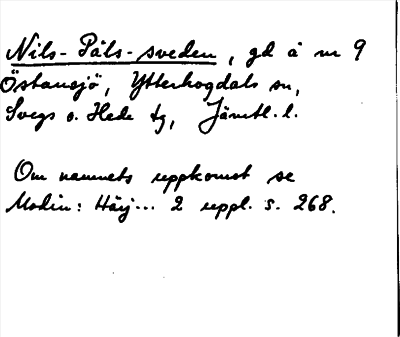 Nils-Påls-sveden, gd å nr 9
Östansjö, Ytterhogdals sn,
Svegs o. Hede tg, Jämtl. l.
Om namnets uppkomst se
Modin: Härj... 2 uppl. s. 268.